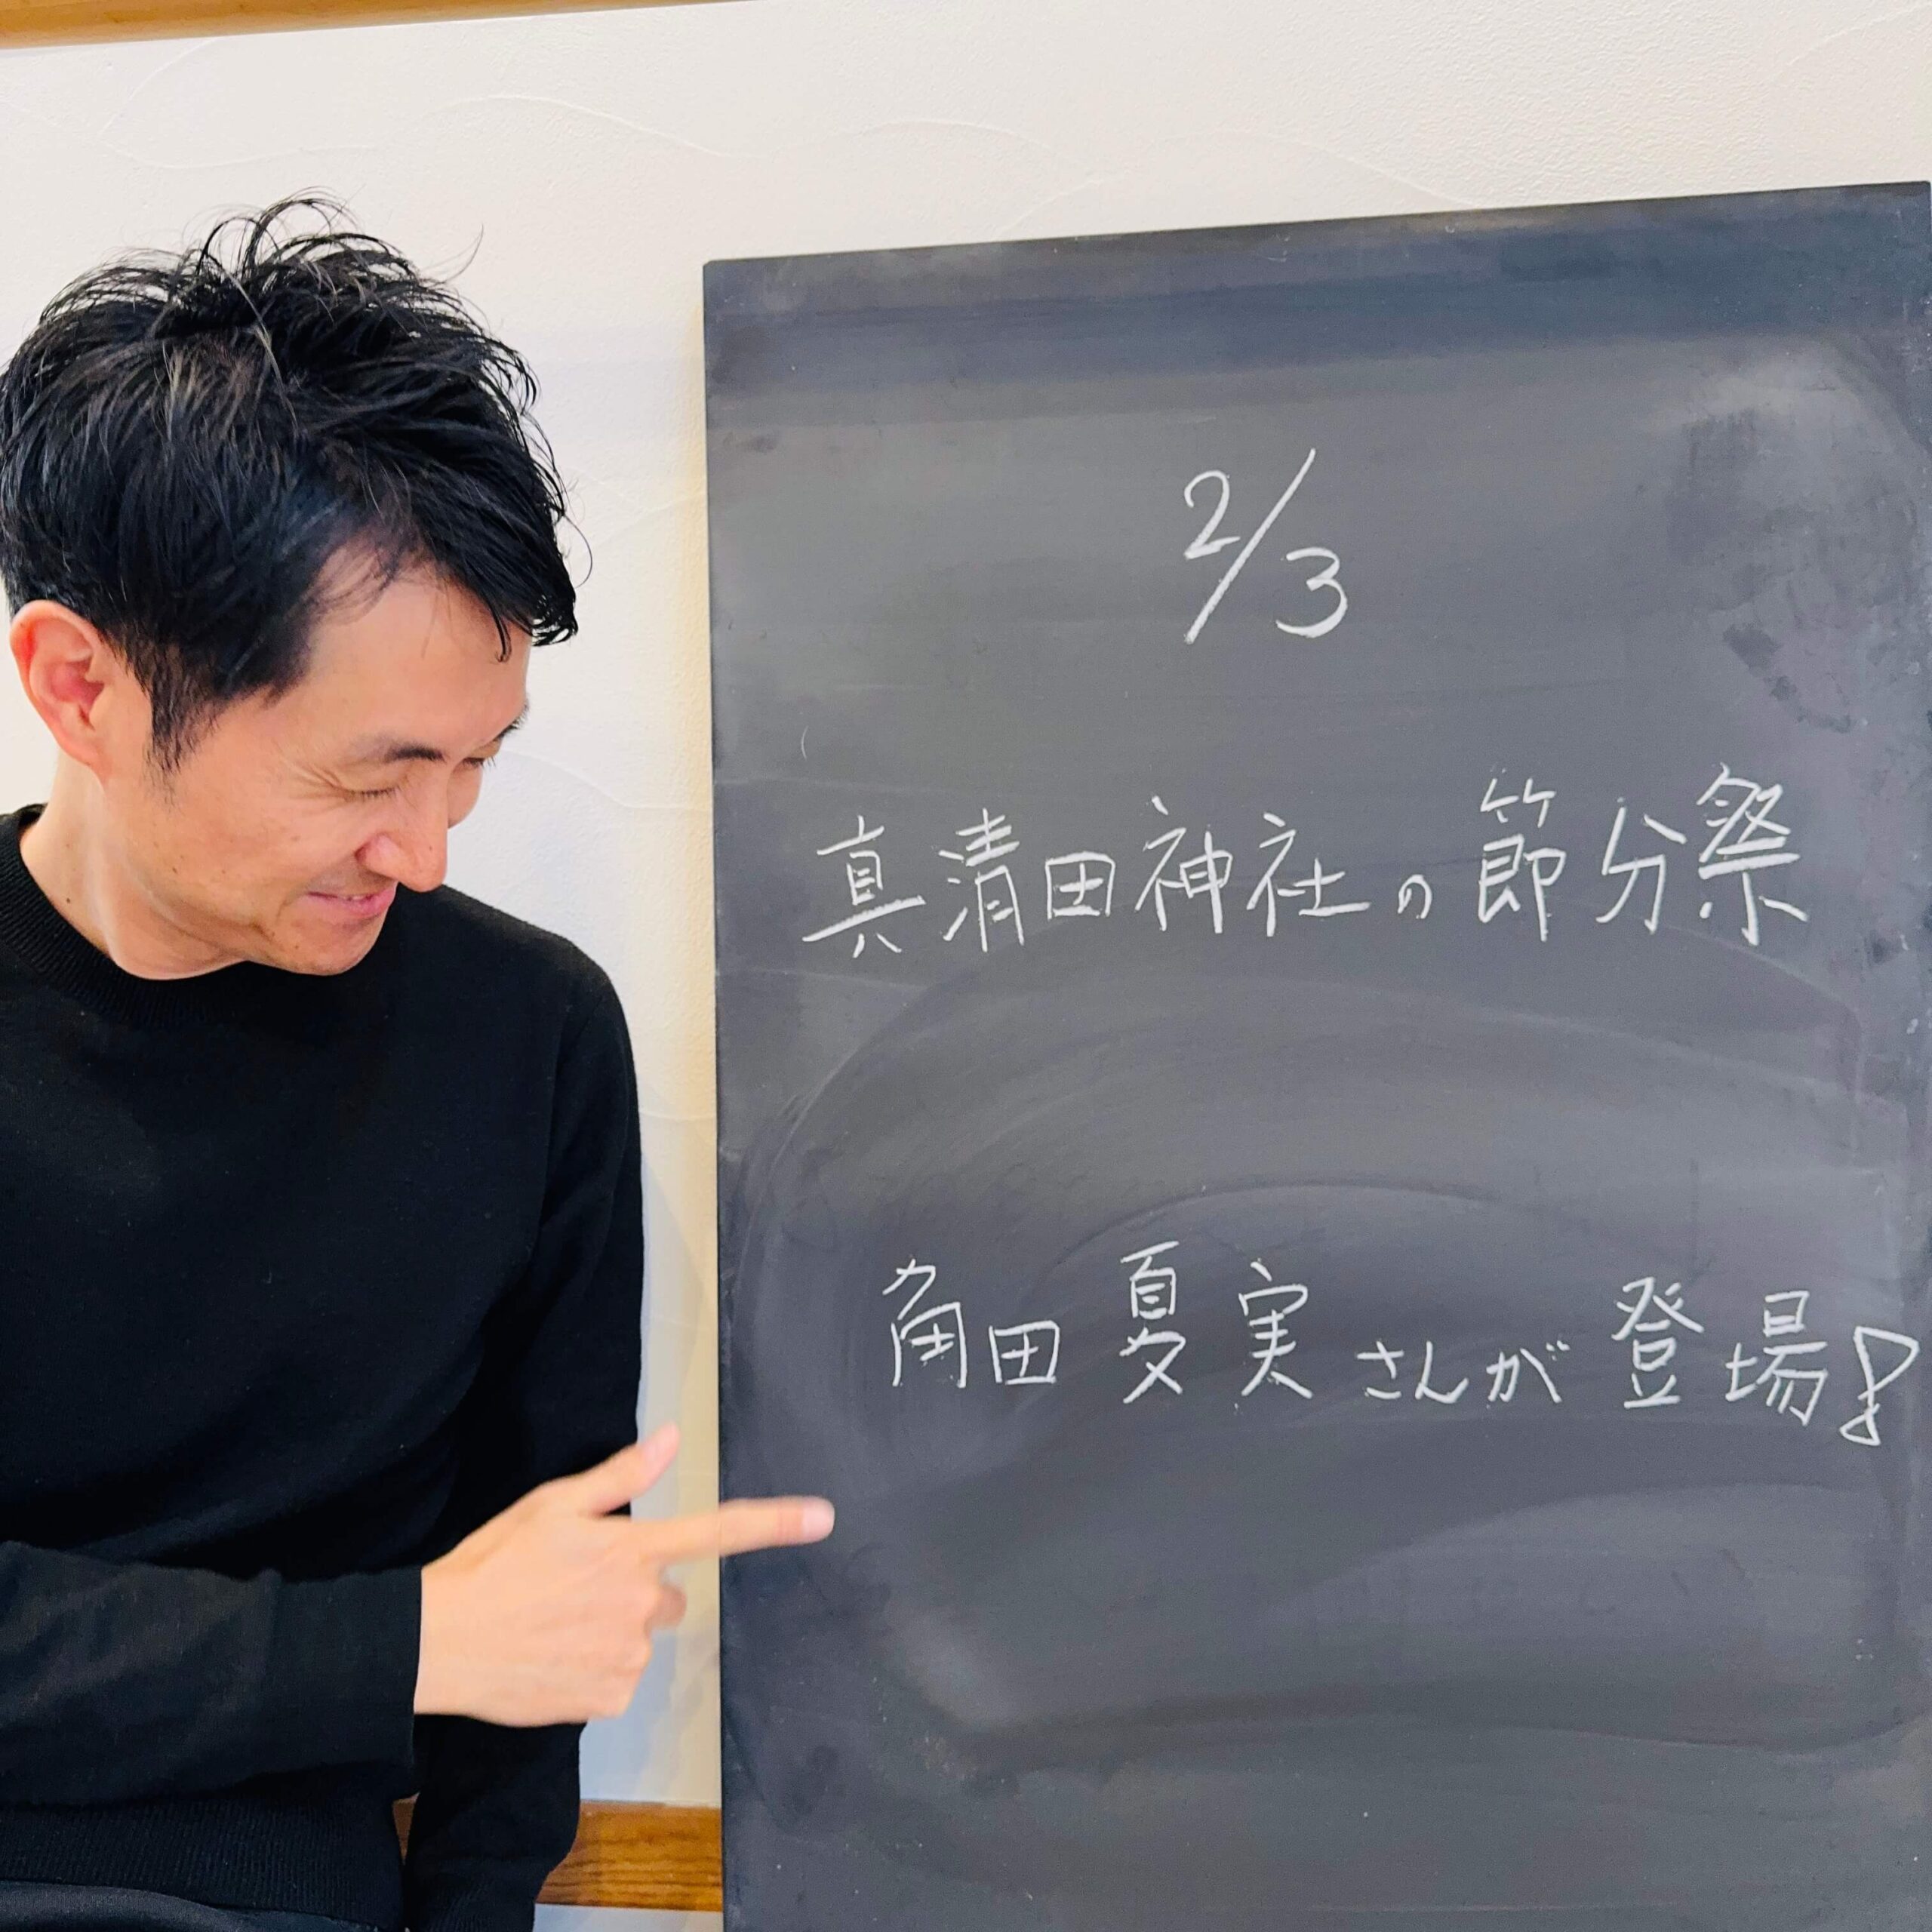 2/3
真清田神社の節分祭
角田夏実さんが登場!